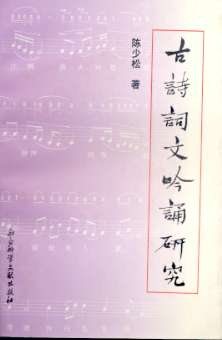 陈少松 著
古詩詞文吟誦研究
社会科学文献出版社